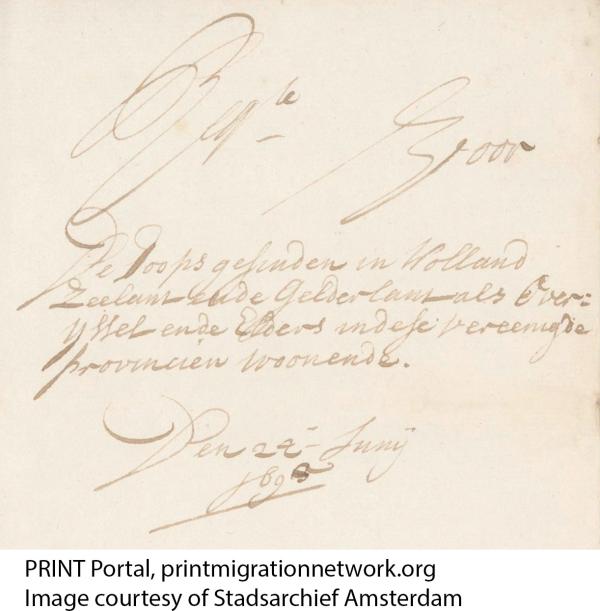 Reqte voor
De Doopsgesinden in Holland
Zeelant ende Gelderlant als Over=
ijssel ende Elders in dese vereenigde
provincien woonende.
Den 24 Junij
PRINT Portal, printmigrationnetwork.org
Image courtesy of Stadsarchief Amsterdam